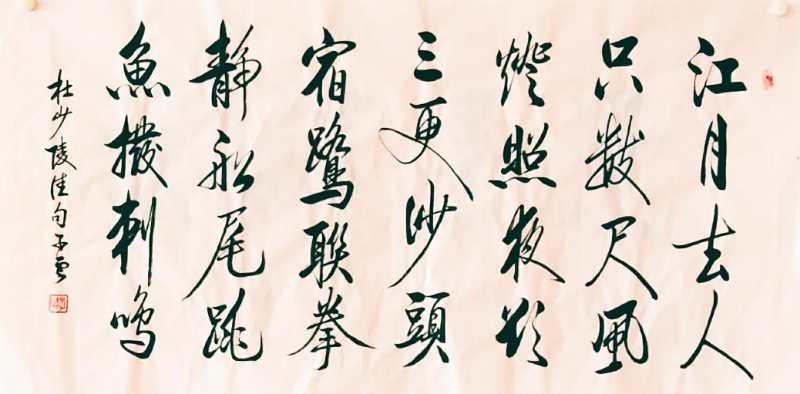 江月去人
只数尺風
燈照夜欲
三更沙頭
宿鷺聯拳
靜船尾跳
魚撥刺鳴
杜少陵佳句子